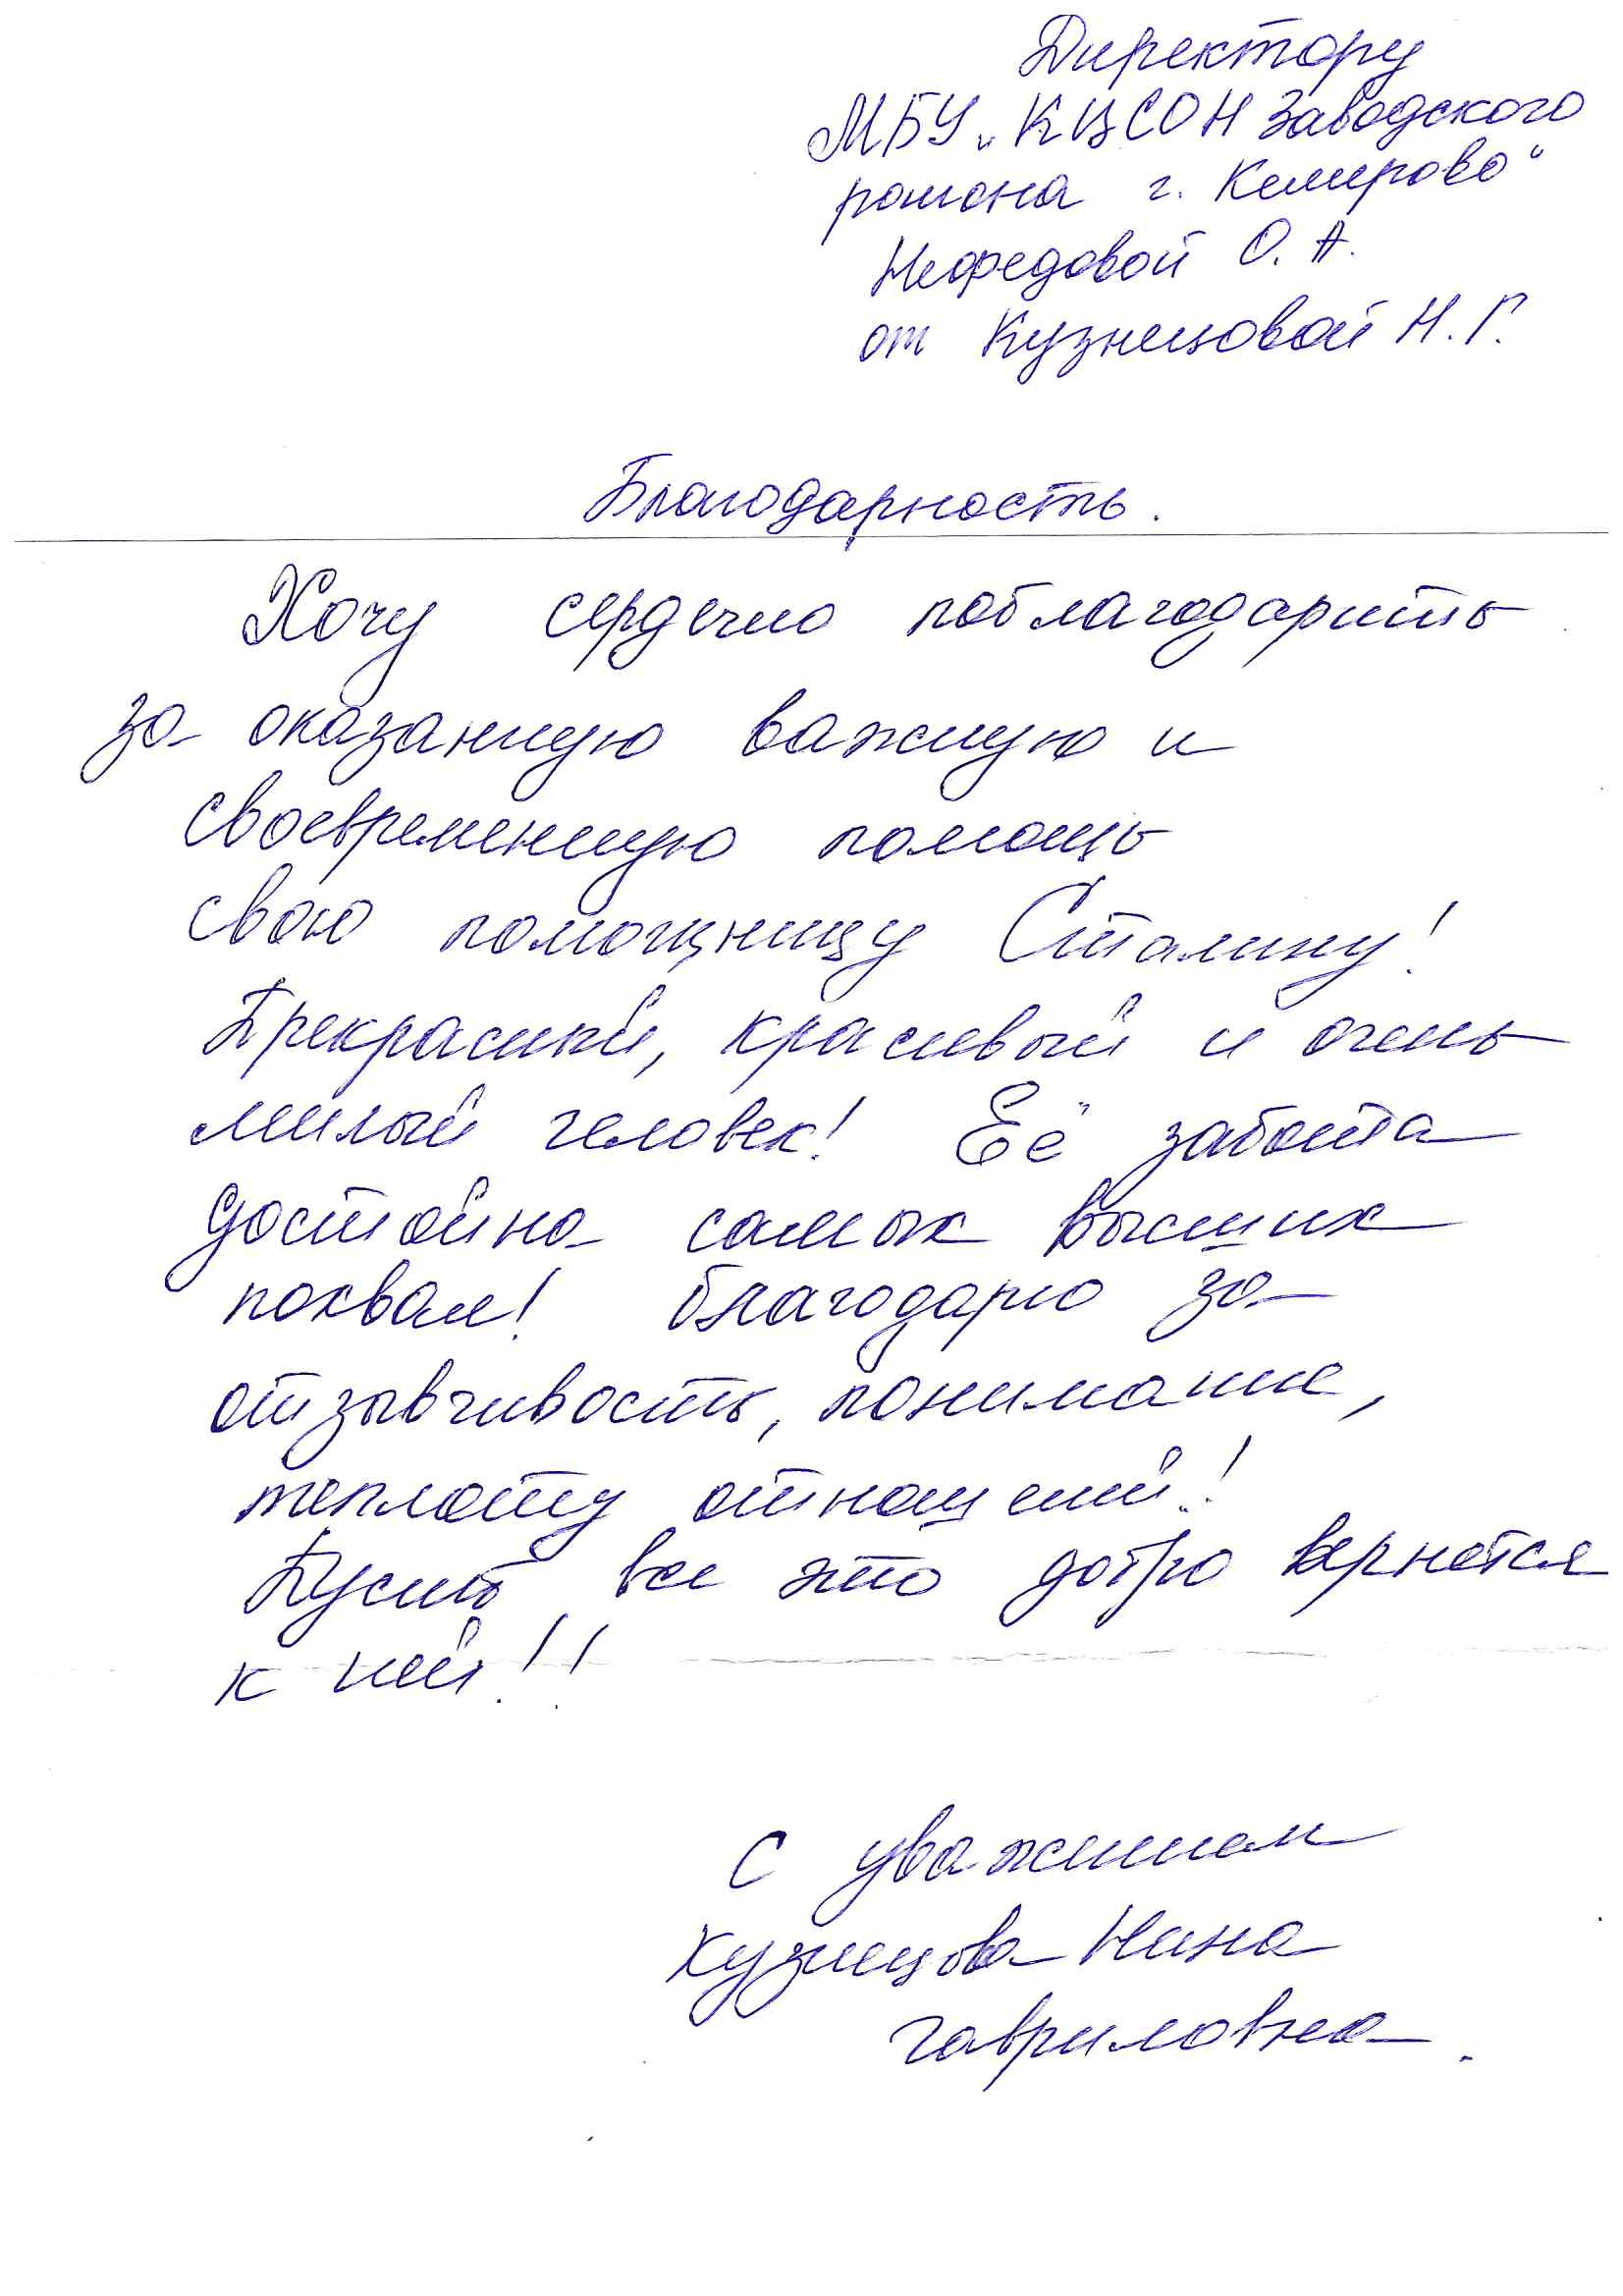 Директору
МБУ „КЦСОН Заводского
района г. Кемерово“
Нефедовой О. А.
от Кузнецовой Н. Г.
Благодарность.
Хочу сердечно поблагодарить
за оказанную важную и
своевременную помощь
свою помощницу Сталину!
Прекрасный, красивый и очень
милый человек! Её забота
достойна самых высших
похвал! благодарю за
отзывчивость, понимание,
теплоту отношений!
Пусть все это добро вернется
к ней!!
С уважением
Кузнецова Нина
Гавриловна.